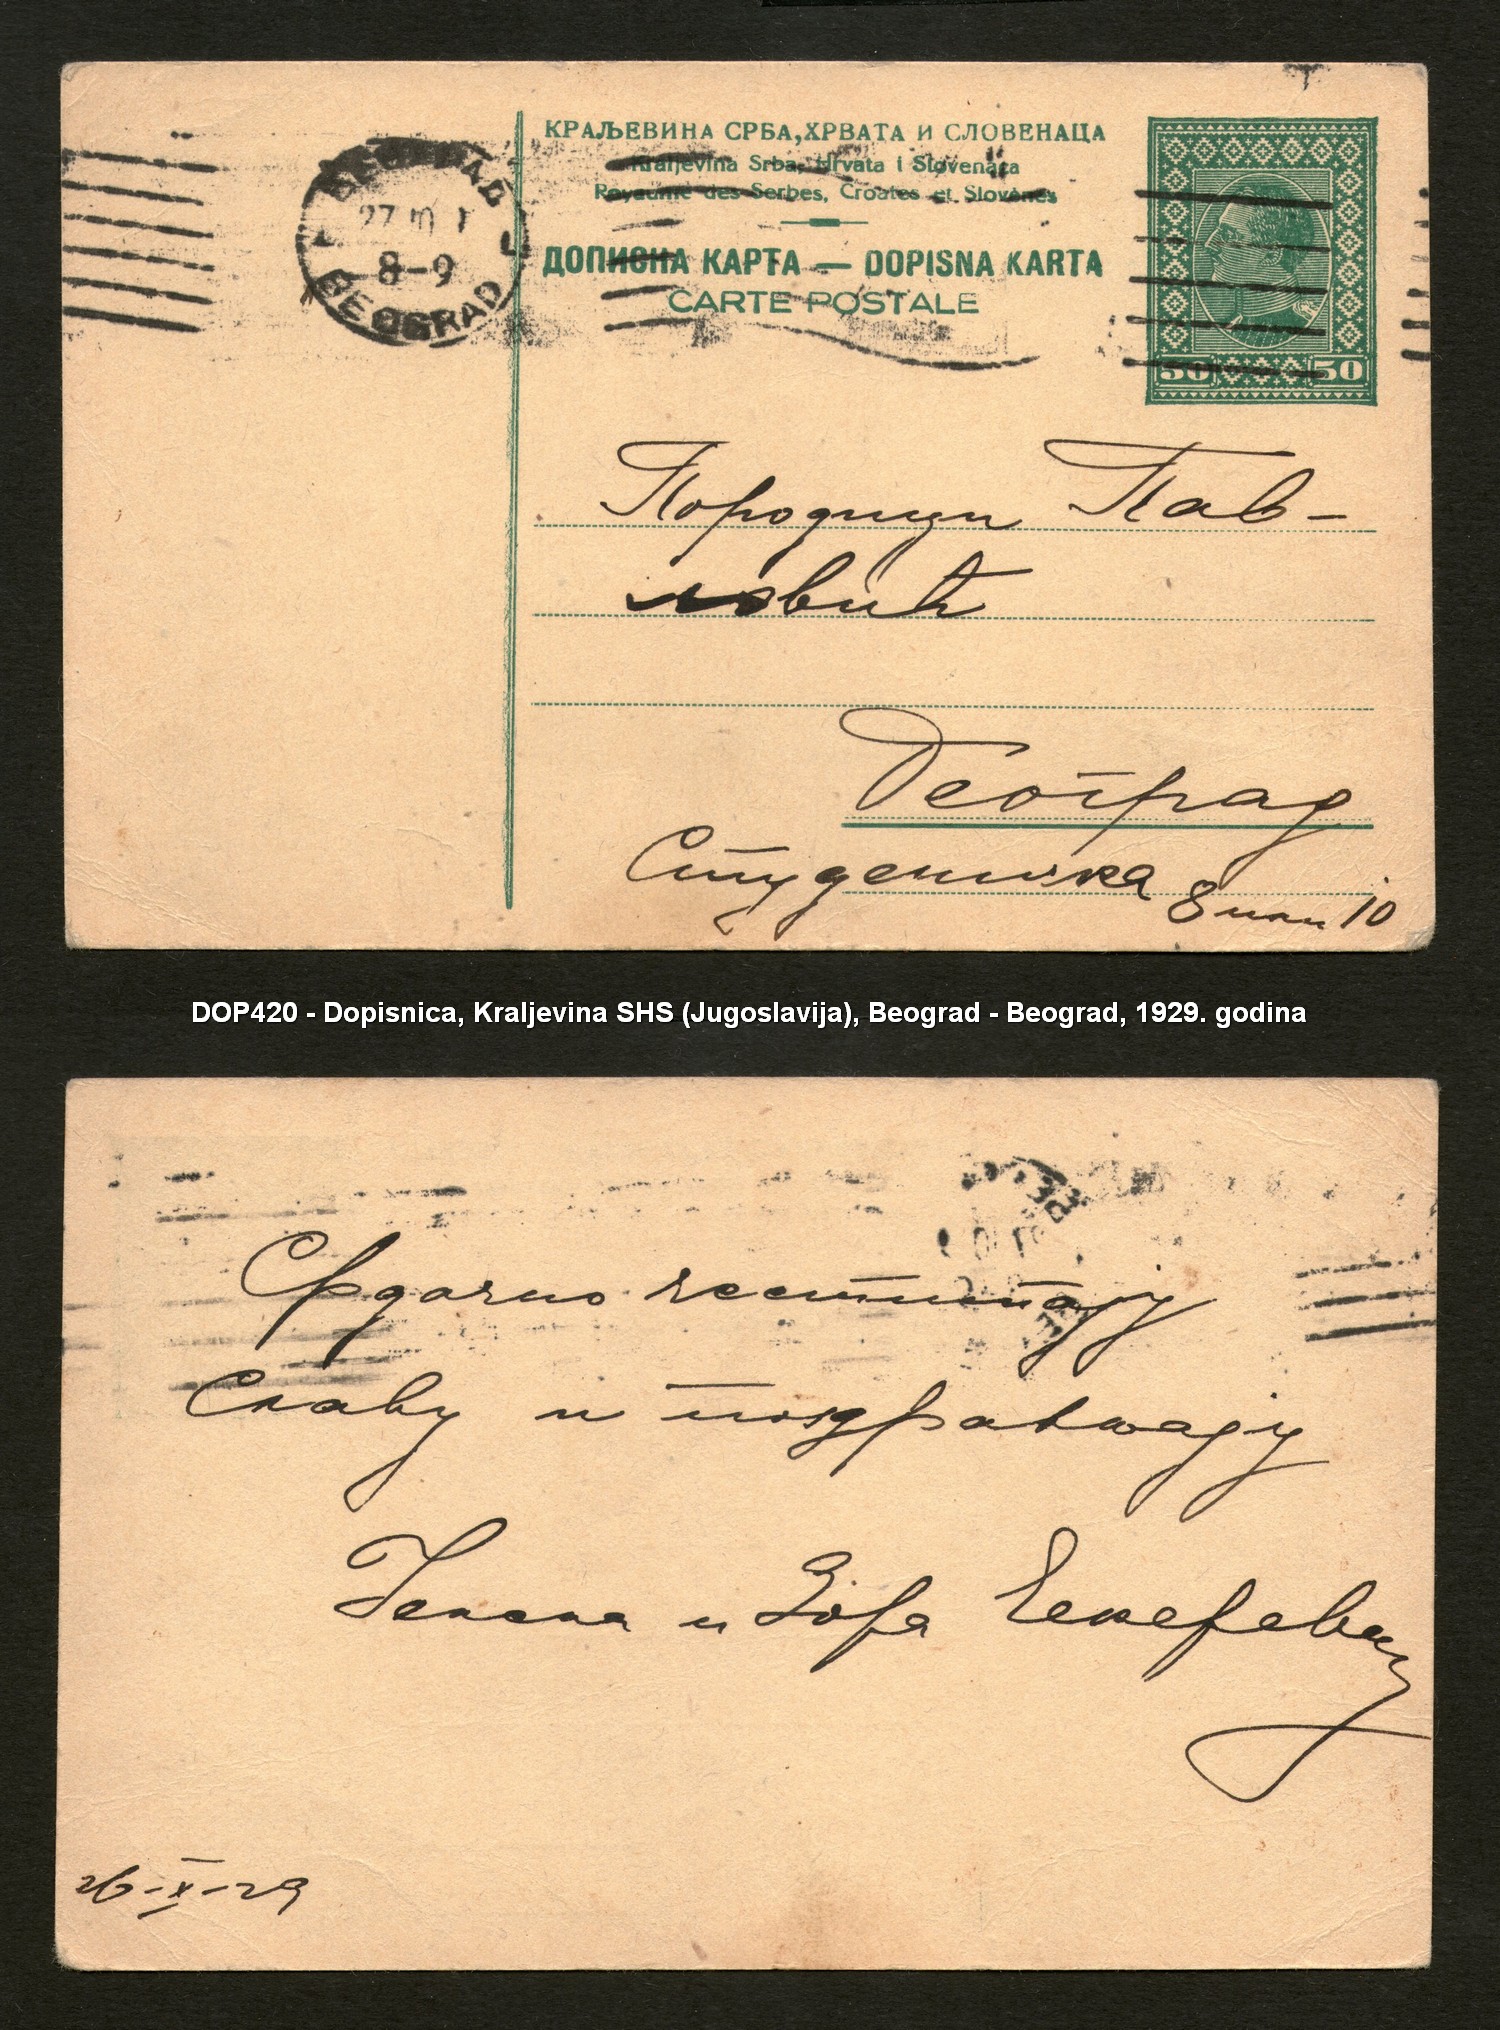 КРАЉЕВИНА СРБА, ХРВАТА И СЛОВЕНАЦА
Kraljevina Srba, Hrvata i Slovenaca
Royaume des Serbes, Croates et Slovènes
ДОПИСНА КАРТА — DOPISNA KARTA
CARTE POSTALE
БЕОГРАД
27 10
8-9
BEOGRAD
50 50
Породици Пав-
ловић
Београд
Студеничка 8 или 10
DOP420 - Dopisnica, Kraljevina SHS (Jugoslavija), Beograd - Beograd, 1929. godina
Срдачно честитају
Славу и поздрављају
и Зора
26-X-29